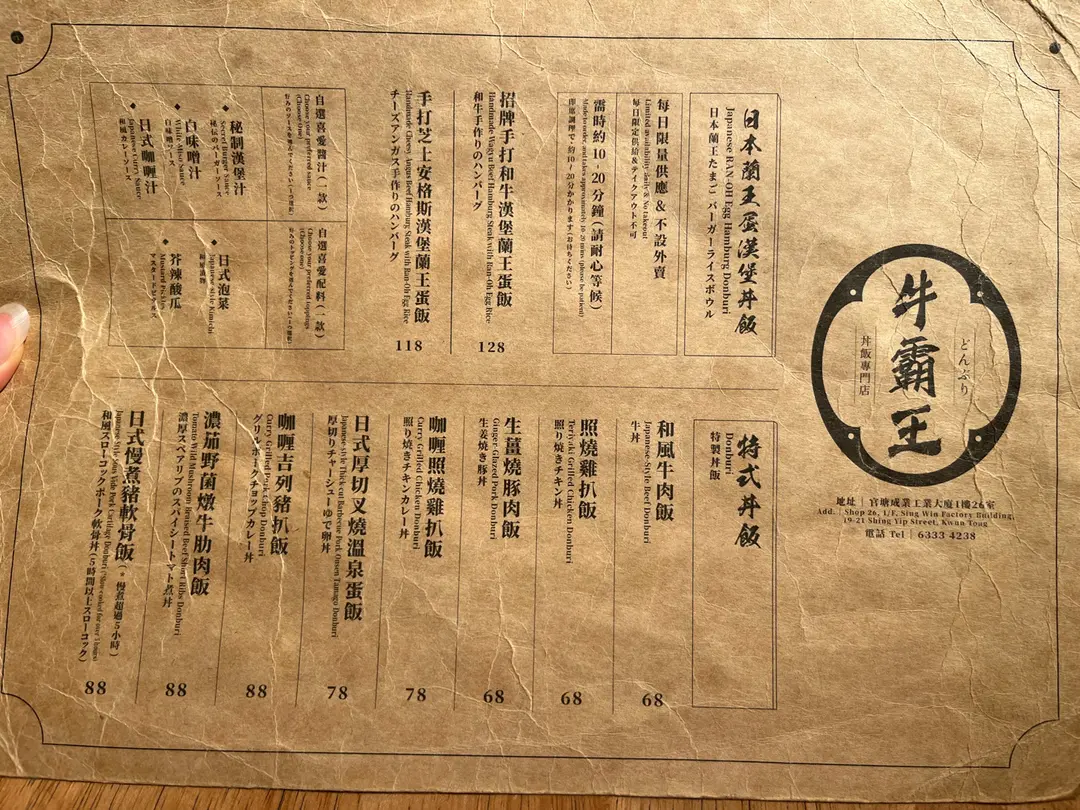 牛霸王
どんぶり
丼飯專門店
地址｜官塘成業工業大廈1樓26室
Add. | Shop 26, 1/F, Sing Win Factory Building,
19-21 Shing Yip Street, Kwun Tong
電話 Tel | 6333 4238
日本蘭王蛋漢堡丼飯
Japanese RAN-OH Egg Hamburg Donburi
日本蘭王たまごバーガーライスボウル
每日限量供應 & 不設外賣
Limited availability daily & No takeout!
毎日限定供給&テイクアウト不可
需時約10-20分鐘(請耐心等候)
Made to order, and takes approximately 10-20 mins (please be patient)
即席調理で約10~20分かかります(お待ちください)
招牌手打和牛漢堡蘭王蛋飯
Handmade Wagyu Beef Hamburg Steak with Ran-Oh Egg Rice
和牛手作りのハンバーグ
128
手打芝士安格斯漢堡蘭王蛋飯
Handmade Cheesy Angus Beef Hamburg Steak with Ran-Oh Egg Rice
チーズアンガス手作りのハンバーグ
118
自選喜愛醬汁(一款)
Choose your preferred sauce
(Choose one)
好みのソースを選んでください(一つ選択)
◆ 秘制漢堡汁
Secret Burger Sauce
秘伝のバーガーソース
◆ 白味噌汁
White Miso Sauce
白味噌ソース
◆ 日式咖喱汁
Japanese Curry Sauce
和風カレーソース
自選喜愛配料(一款)
Choose your preferred toppings
(Choose one)
好みのトッピングを選んでください(一つ選択)
◆ 日式泡菜
Japanese-style Kimchi
◆ 芥辣酸瓜
Mustard Pickles
マスタードピクルス
特式丼飯
Donburi
特製丼飯
和風牛肉飯
Japanese-Style Beef Donburi
牛丼
68
照燒雞扒飯
Teriyaki Grilled Chicken Donburi
照り焼きチキン丼
68
生薑燒豚肉飯
Ginger-Glazed Pork Donburi
生姜焼き豚丼
68
咖喱照燒雞扒飯
Curry Grilled Chicken Donburi
照り焼きチキンカレー丼
78
日式厚切叉燒溫泉蛋飯
Japanese-style Thick-cut Barbecue Pork Onsen Tamago Donburi
厚切りチャーシューゆで卵丼
78
咖喱吉列豬扒飯
Curry Grilled Pork Chop Donburi
グリルポークチョップカレー丼
88
濃茄野菌燉牛肋肉飯
Tomato Wild Mushroom Braised Beef Short Ribs Donburi
濃厚スペアリブのスパイシートマト煮丼
88
日式慢煮豬軟骨飯(* 慢煮超過5小時)
Japanese-Style Sous Vide Pork Cartilage Donburi (*Slow cooked for over 5 hours)
和風スローコックポーク軟骨丼(5時間以上スローコック)
88